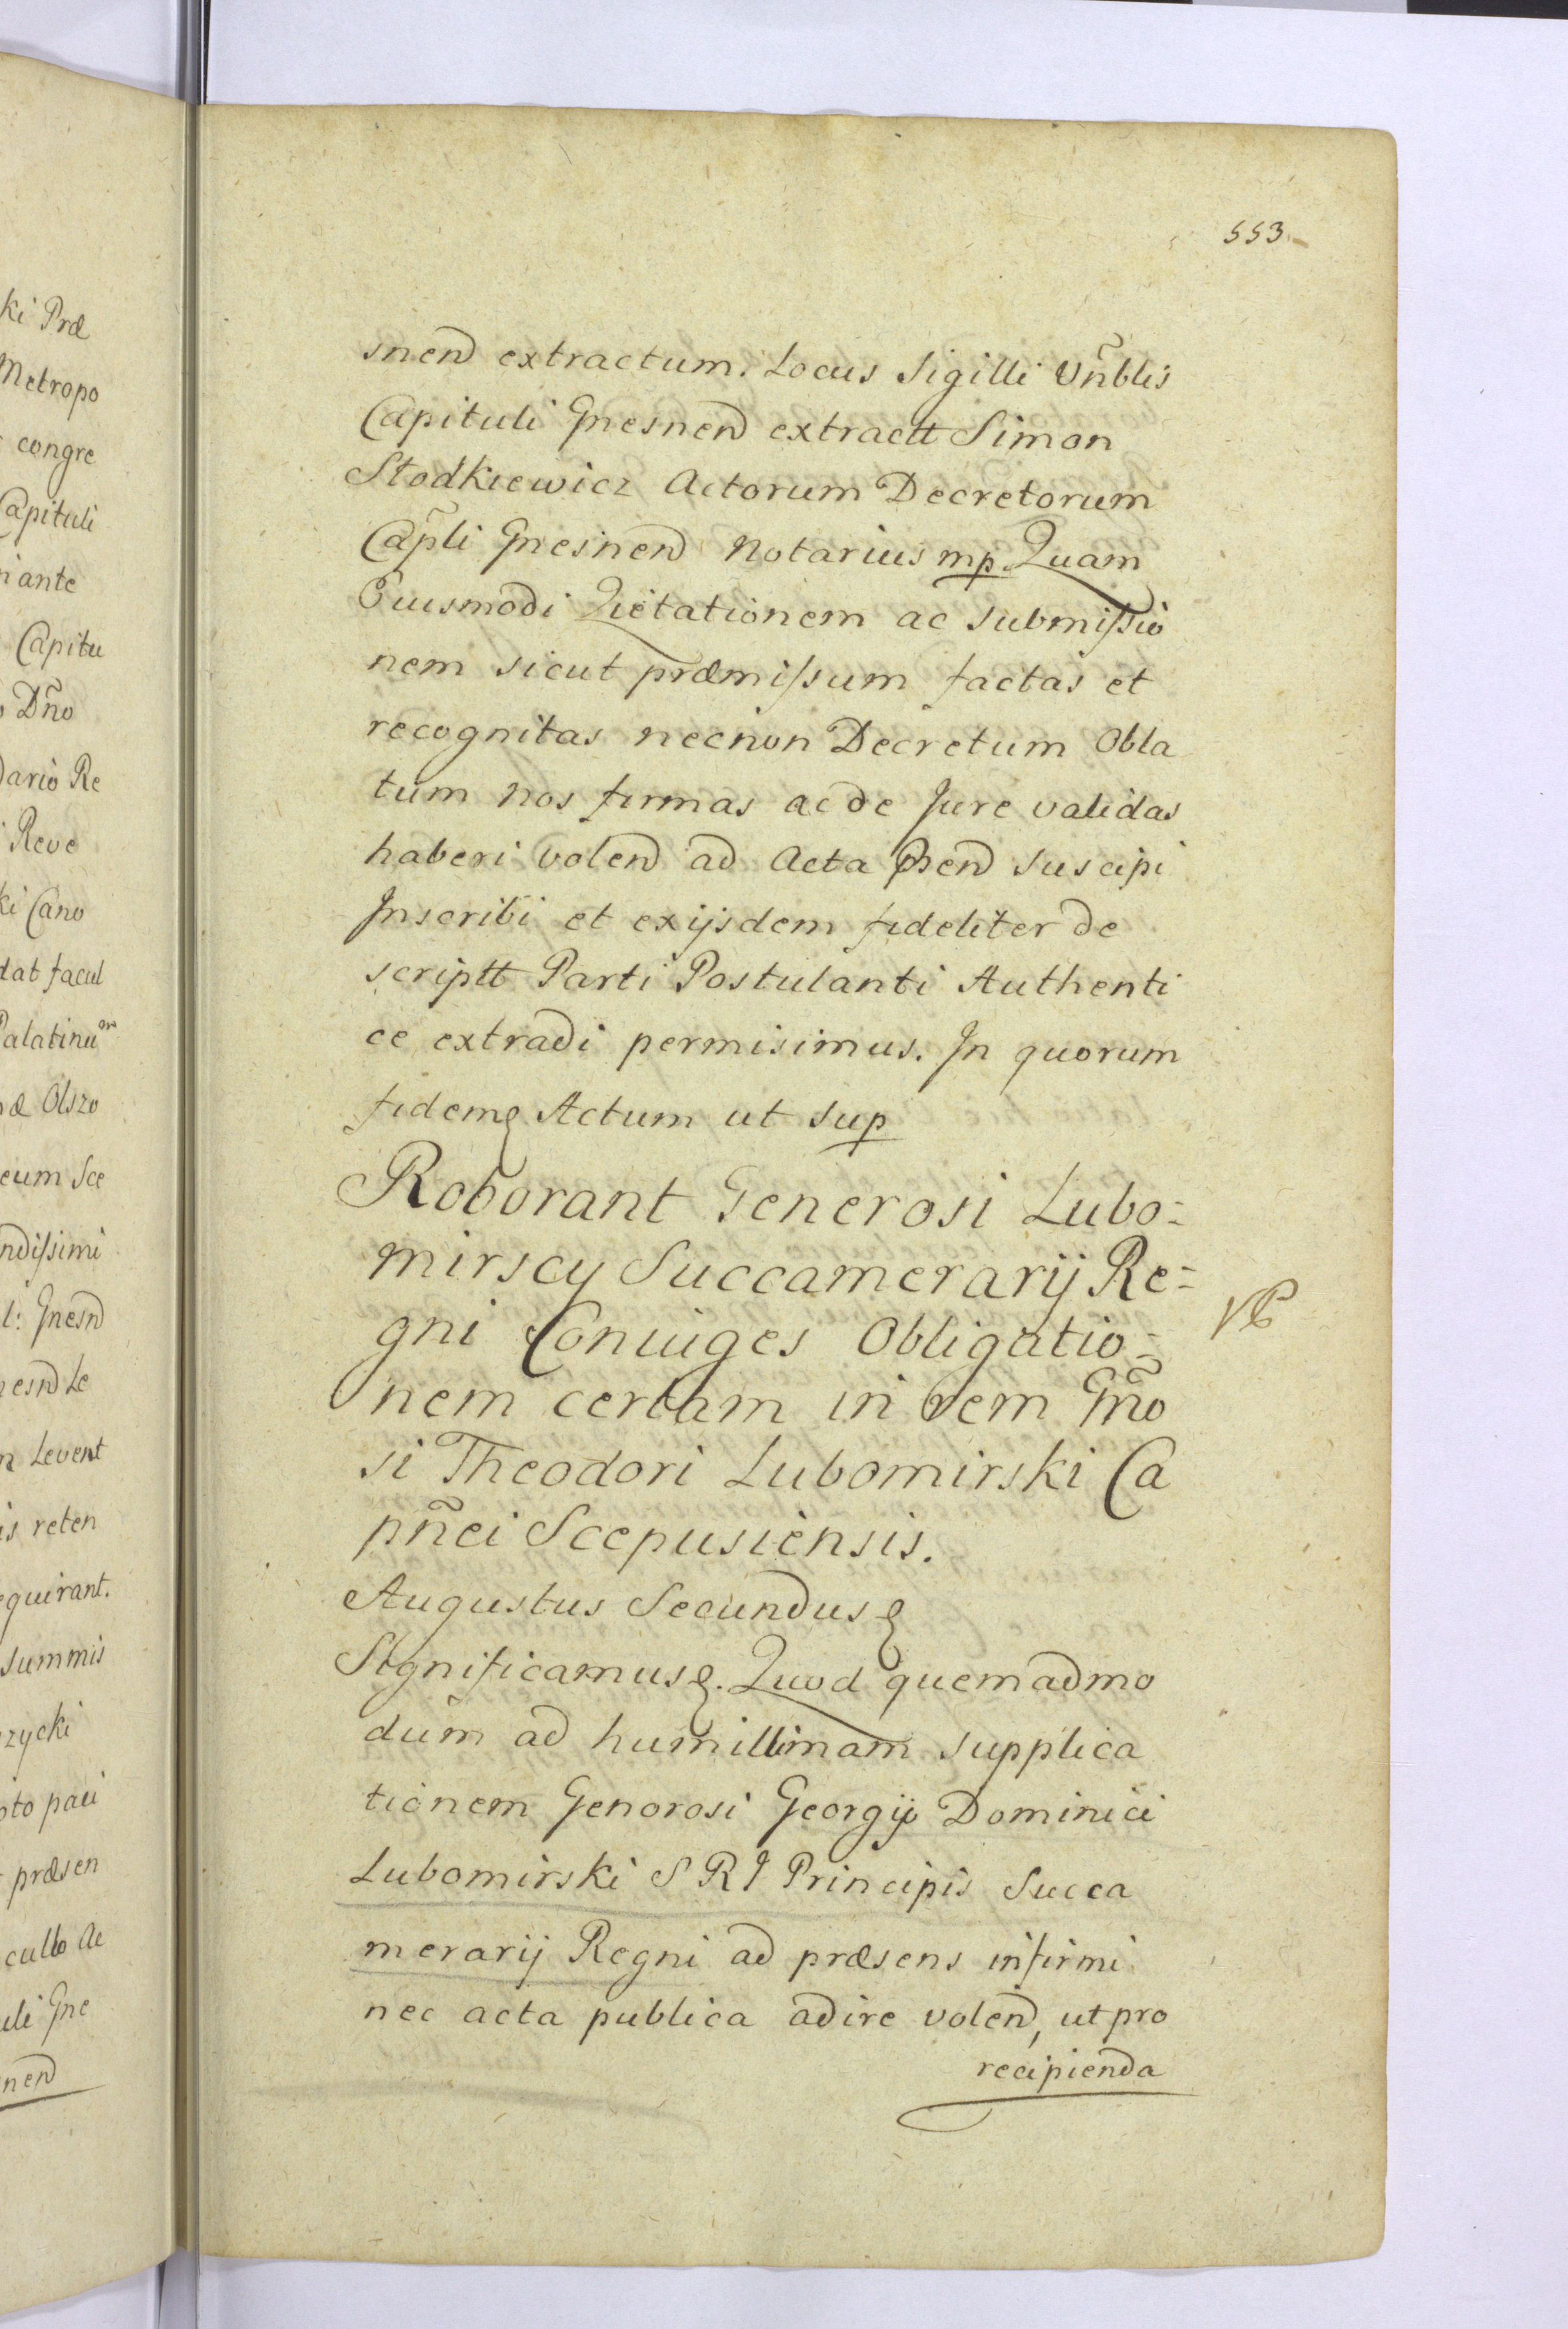 ki Præ
Metropo
congre
Capituli
ante
Capitu
Dño
dario Re
Reve
ki Cano
dat facul
Palatinu
Olszo
eum Sce
ndissimi
Gnesnd
esnd Le
Levent
is reten
equirant.
summis
zycki
pto paci
præsen
Ac
uli Gne
nend
553
snend extractum. Locus Sigilli Vñblis
Capituli Gnesnend extractt Simon
Słodkiewicz Actorum Decretorum
Cãpli Gnesnend Notarius mp. Quam
Eiusmodi Qietationem ac submissio
nem sicut præmissum factas et
recognitas necnon Decretum Obla
tum nos firmas ac de Jure validas
haberi volend ad Acta Psend suscipi
Inscribi et exijsdem fideliter de
scriptt Parti Postulanti Authenti
ce extradi permisimus. In quorum
fidem Actum ut sup
Roborant Generosi Lubo=
mirscy Succamerarij Re=
gni Coniuges Obligatio=
nem certam in rem Gño
si Theodori Lubomirski Ca
pñei Scepusiensis.
Augustus Secundus
Significamus. Quod quemadmo
dum ad humillimam supplica
tionem Genorosi Georgij Dominici
Lubomirski S R I Principis Succa
merarij Regni ad præsens infirmi
nec acta publica adire volend, ut pro
recipienda